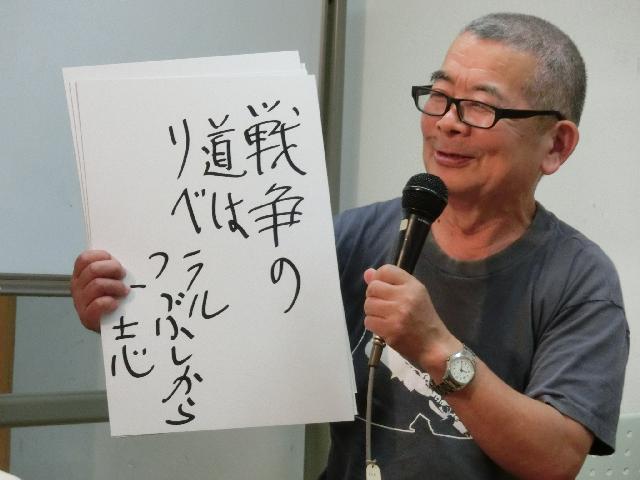 戦争の
道は
リベ
ラル
つぶしから
一志